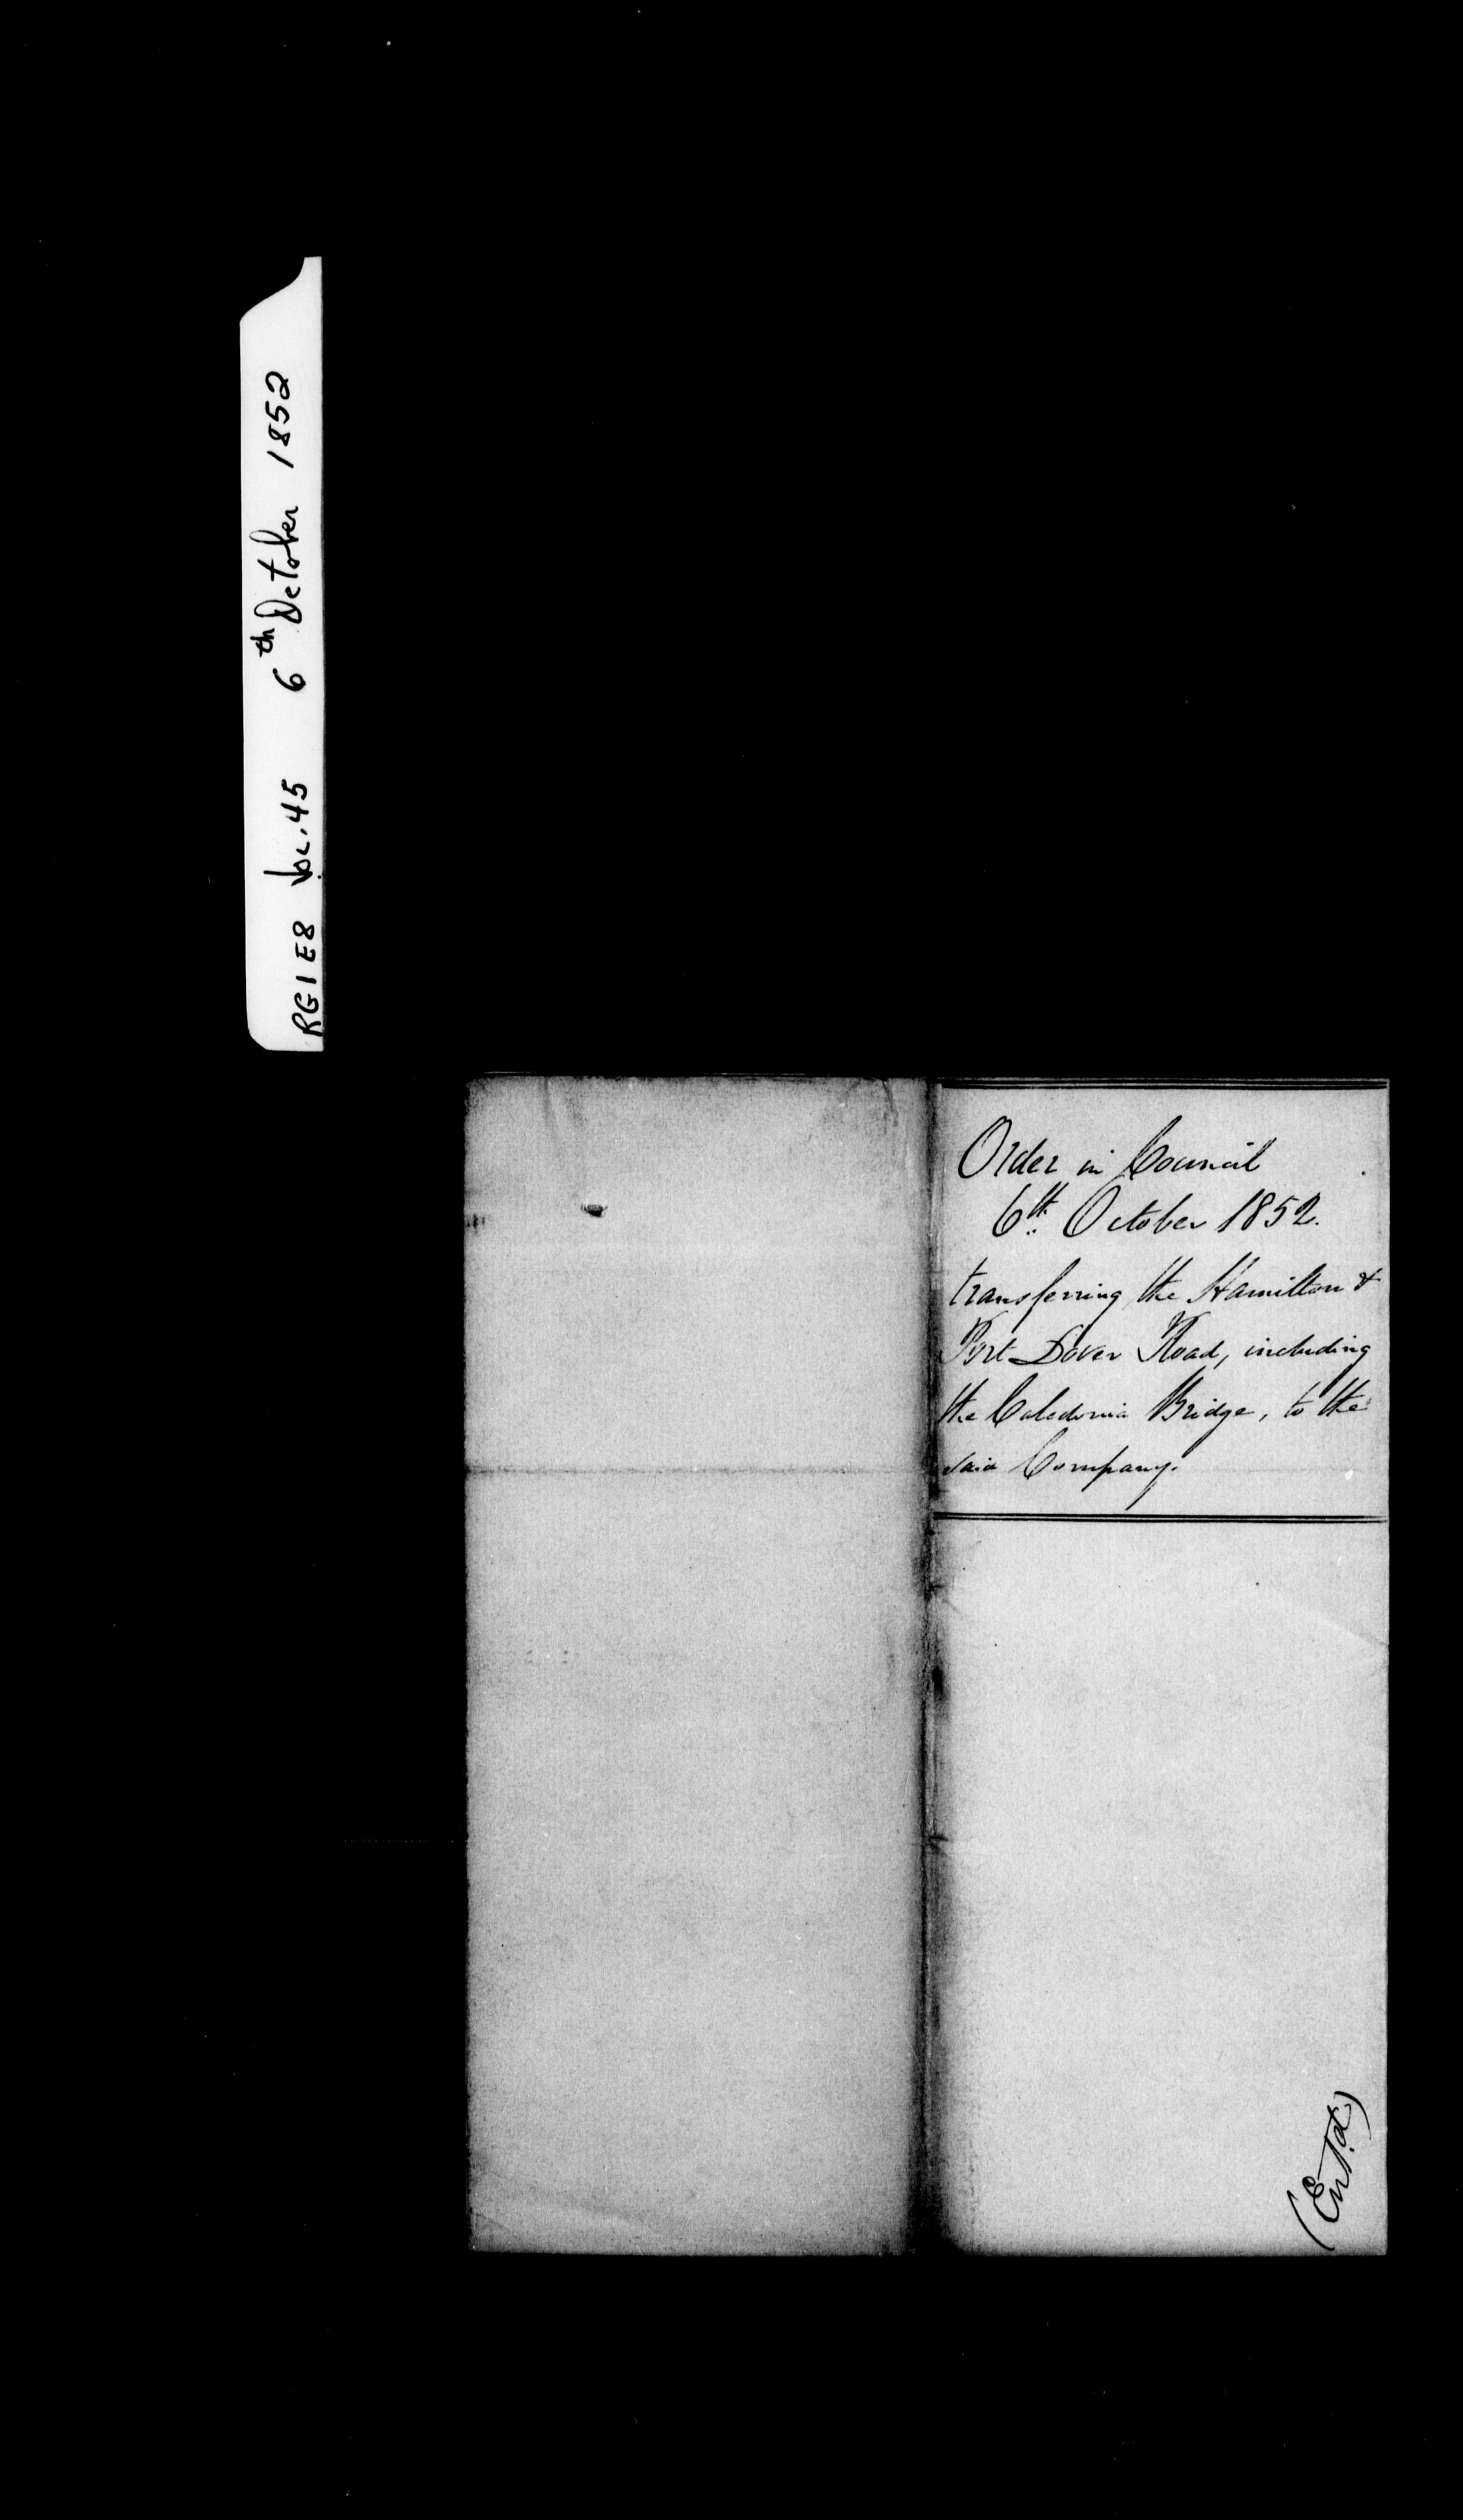 RG1E8 Vol.45 6th October 1852
Order in Council
6th October 1852.
transferring the Hamilton &
Port Dover Road, including
the Caledonia Bridge, to the
said Company.
(Entd.)